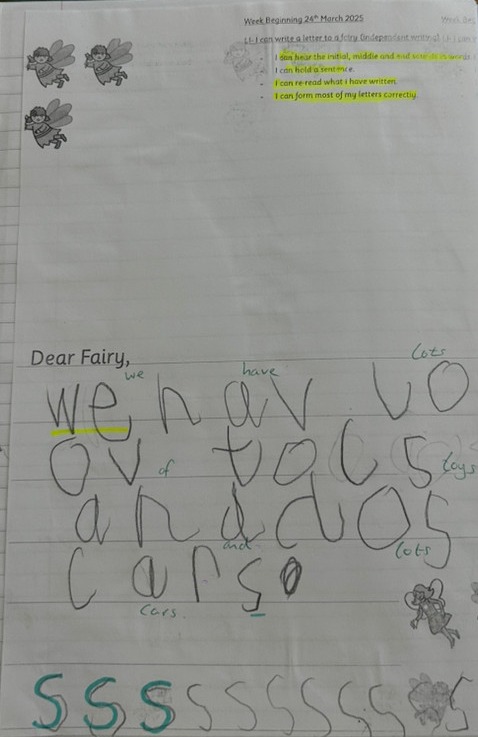 Week Beginning 24th March 2025
LI- I can write a letter to a fairy (independent writing)
I can hear the initial, middle and end sounds in words
I can hold a sentence.
I can re-read what I have written.
I can form most of my letters correctly.
Dear Fairy,
we have lots
we hav lo
ov
of toys
and
and lots
cars
cars.
s s s s s s s s s s